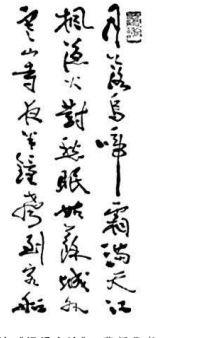 月落烏啼霜滿天江
楓漁火對愁眠姑蘇城外
寒山寺夜半鐘聲到客船